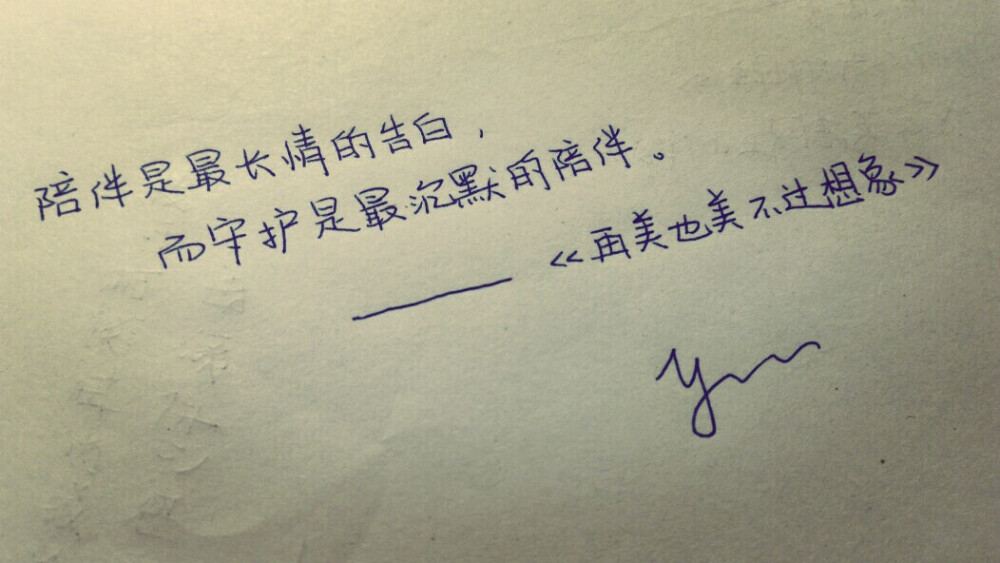 陪伴是最长情的告白，
而守护是最沉默的陪伴。
——《再美也美不过想象》